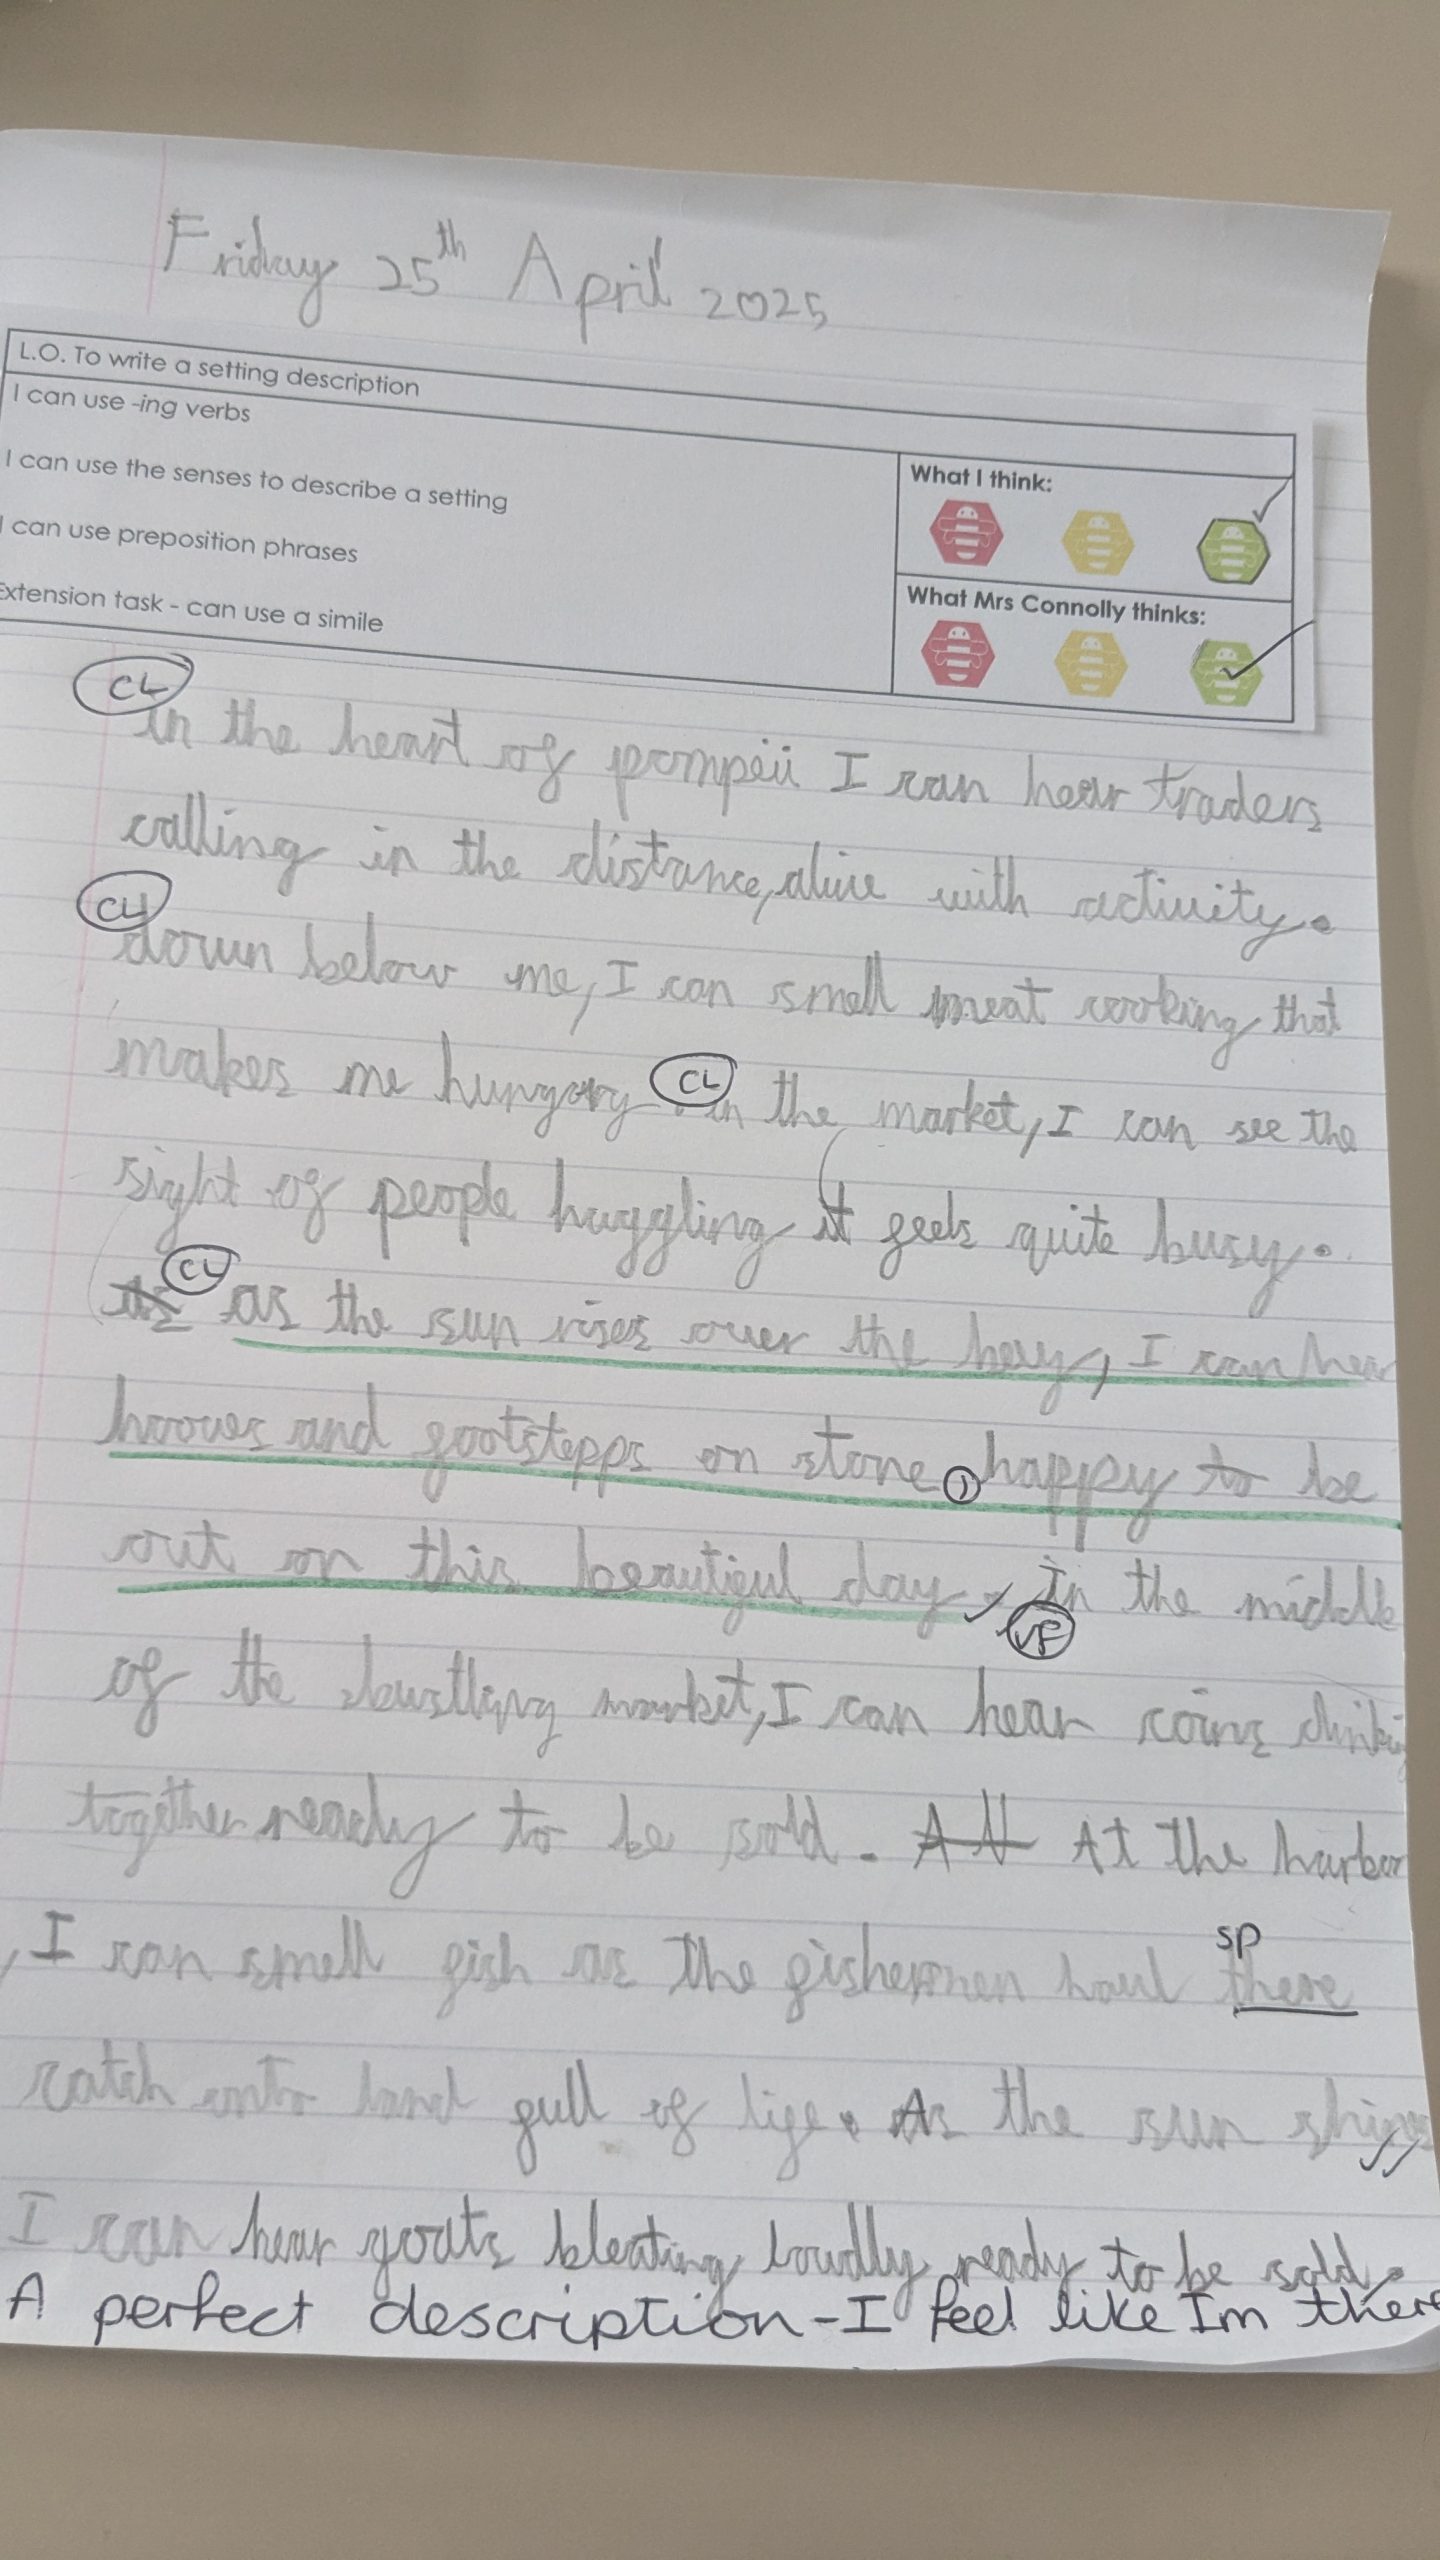 Friday 25th April 2025
L.O. To write a setting description
I can use -ing verbs
I can use the senses to describe a setting
I can use preposition phrases
Extension task - can use a simile
What I think:
What Mrs Connolly thinks:
CL
in the heart of pompeii I can hear traders
calling in the distance, alive with activity.
CL
down below me, I can smell meat cooking that
makes me hungory. CL in the market, I can see the
sight of people haggling it feels quite busy.
As CL as the sun rises over the bay, I can hear
hooves and footstepps on stone, happy to be
out on this beautiful day. In the middle
VF
of the bustling market, I can hear coins clinking
together ready to be sold. At At the harbor
, I can smell fish as the fishermen haul there
sp
catch onto land full of life. As the sun shines
I can hear goats bleating loudly ready to be sold.
A perfect description - I feel like Im there